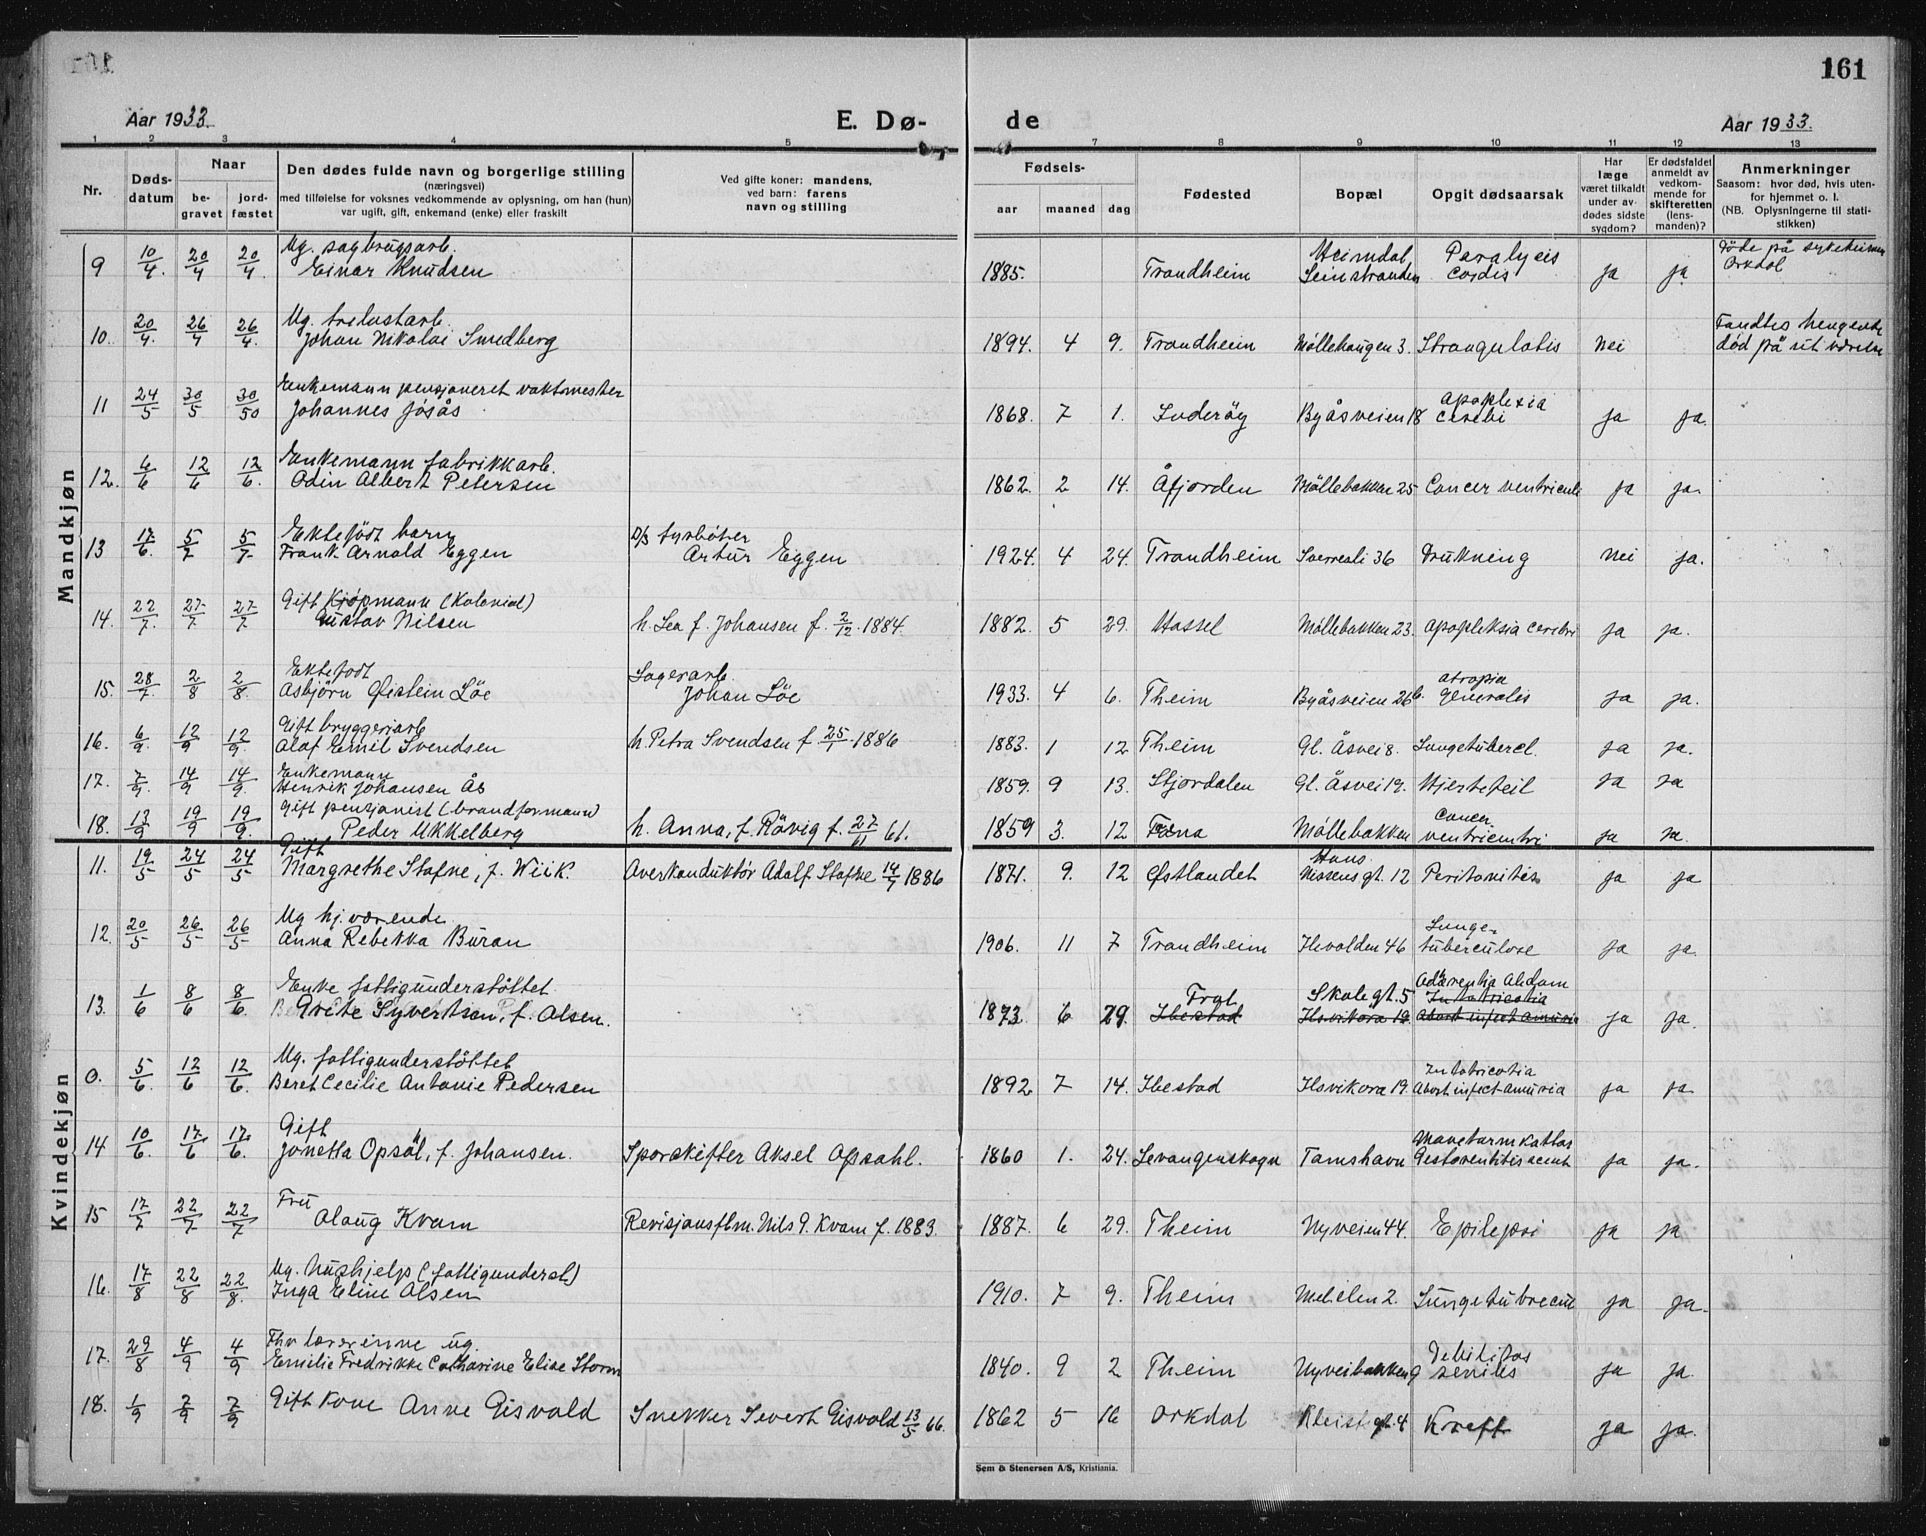 161
Aar 1933.
E. Dø-
de
Aar 1933.
1 2 3 4 5 7 8 9 10 11 12 13
Nr.
Døds-
datum
Naar
be-
gravet
jord-
fæstet
Den dødes fulde navn og borgerlige stilling
(næringsvei)
med tilføielse for voksnes vedkommende av oplysning, om han (hun)
var ugift, gift, enkemand (enke) eller fraskilt
Ved gifte koner: mandens,
ved barn: farens
navn og stilling
Fødsels-
aar maaned dag
Fødested
Bopæl
Opgit dødsaarsak
Har
læge
været tilkaldt
under av-
dødes sidste
sygdom?
Er dødsfaldet
anmeldt av
vedkom-
mende for
skifteretten
(lens-
manden)?
Anmerkninger
Saasom: hvor død, hvis uten-
for hjemmet o. l.
(NB. Oplysningerne til stati-
stikken)
Mandkjøn
Ug. sagbrugsarb. Heimdal Paralysis Døde på sykeheimen
9 10/4. 20/4 20/4. Einar Knudsen 1885. Trondheim Leinstranden cordis ja ja Orkdal
Ug. trelastarb. Fandtes hengende
10. 20/4. 26/4 26/4. Johan Nikolai Smedberg 1894. 4 9. Trondheim Møllehaugen 3. Strangulatis nei død på sit værelse
Enkemann pensjoneret vaktmester apoplexia
11 24/5 30/5 30/50 Johannes Jøsås 1868. 7 1. Inderøy Byåsveien 18 cerebi ja ja.
Enkemann fabrikkarb.
12. 6/6 12/6 12/6. Odin Albert Petersen 1862. 2 14. Åfjorden Møllebakken 25 Cancer ventriculi ja ja.
Ektefødt barn D/s fyrbøter
13 17/6. 5/7 5/7. Frank Arnold Eggen Artur Eggen 1924. 4 24. Trondheim Sverresli 36 Drukning nei ja.
Gift Kjøpmann (Kolonial)
14. 22/7. 27/7 27/7 Gustav Nilsen h. Lea f. Johansen f. 2/12. 1884. 1882. 5 29. Hassel Møllebakken 23. apopleksia cerebri ja ja.
Ektefødt Lagerarb. atropia
15. 28/7. 2/8 2/8. Asbjörn Øistein Löe Johan Löe 1933. 4 6. Theim Byåsveien 26b. generalis ja ja.
Gift bryggeriarb
16. 6/9. 12/9 12/9 Olaf Emil Svendsen h. Petra Svendsen f 25/1. 1886 1883. 1 12 Theim Gl. Åsvei 8. Lungetubercl. ja ja.
Enkemann
17. 7/9. 14/9 14/9. Henrik Johansen Ås 1859. 9 13. Stjordalen Gl. Åsvei 19. Hjertefeil ja ja
Gift pensjonist (brandformann) Cancer
18. 13/9 19/9 19/9. Peder Ukkelberg h. Anna, f. Rövig f. 27/11 61. 1859 3. 12 Møllebakken ja ja.
Kvindekjøn
Gift Hans
11. 19/5 24/5 24/5 Margrethe Stafne, f. Wiik Averkonduktør Adolf Stafne 14/7 1886 1871. 9. 12 Østlandet Nissens gt. 12 Peritonitis ja ja
Ug hj. værende Lunge-
12. 20/5 26/5 26/5 Anna Rebekka Buran 1906. 11 7 Trondheim Ilevolden 46 tuberculose ja ja.
Enke fattigunderstöttet Skolegt. 5
13. 1/6 8/6 8/6. Grete Syvertsen, f. Olsen. 1873. 6 29. Ibestad Ilsvikøra 19. Abort infect anuria ja ja.
Ug. fattigunderstöttet Intotricotia
0. 5/6. 12/6 12/6. Beret Cecilie Antonie Pedersen 1892. 7 14. Ibestad Ilsvikøra 19. Abort infect anuria ja ja.
Gift Mavetarmkattar
14 10/6. 17/6 17/6. Jonetta Opsål, f. Johansen. Sporskifter Aksel Opsahl. 1860 1. 24. Levangerskogn Tamshavn ja ja.
Fru
15 17/7 22/7 22/7 Olaug Kvam Revisjonsflm. Nils P. Kvam f. 1883. 1887. 6 29. Theim Nyveien 44. Epilepsi ja ja
Ug. Hushjelp (fattigunderst)
16. 17/8 22/8 22/8. Inga Eline Olsen 1910. 7 9. Theim Melielen 2. Lungetubrecul ja ja.
Fhv lærerinne ug. Debilitas
17. 29/8 4/9 4/9 Emilie Fredrikke Catharine Elise Storm 1840. 9 2 Theim Nyveibakken 9 senilis ja ja.
18. 1/9 7/9 7/9 Gift Kone Anne Eisvold Snekker Severt Eisvold 13/5 66. 1862 5 16 Orkdal Kleistgt. 4 Kreft ja ja.
Sem & Stenersen A/S, Kristiania.